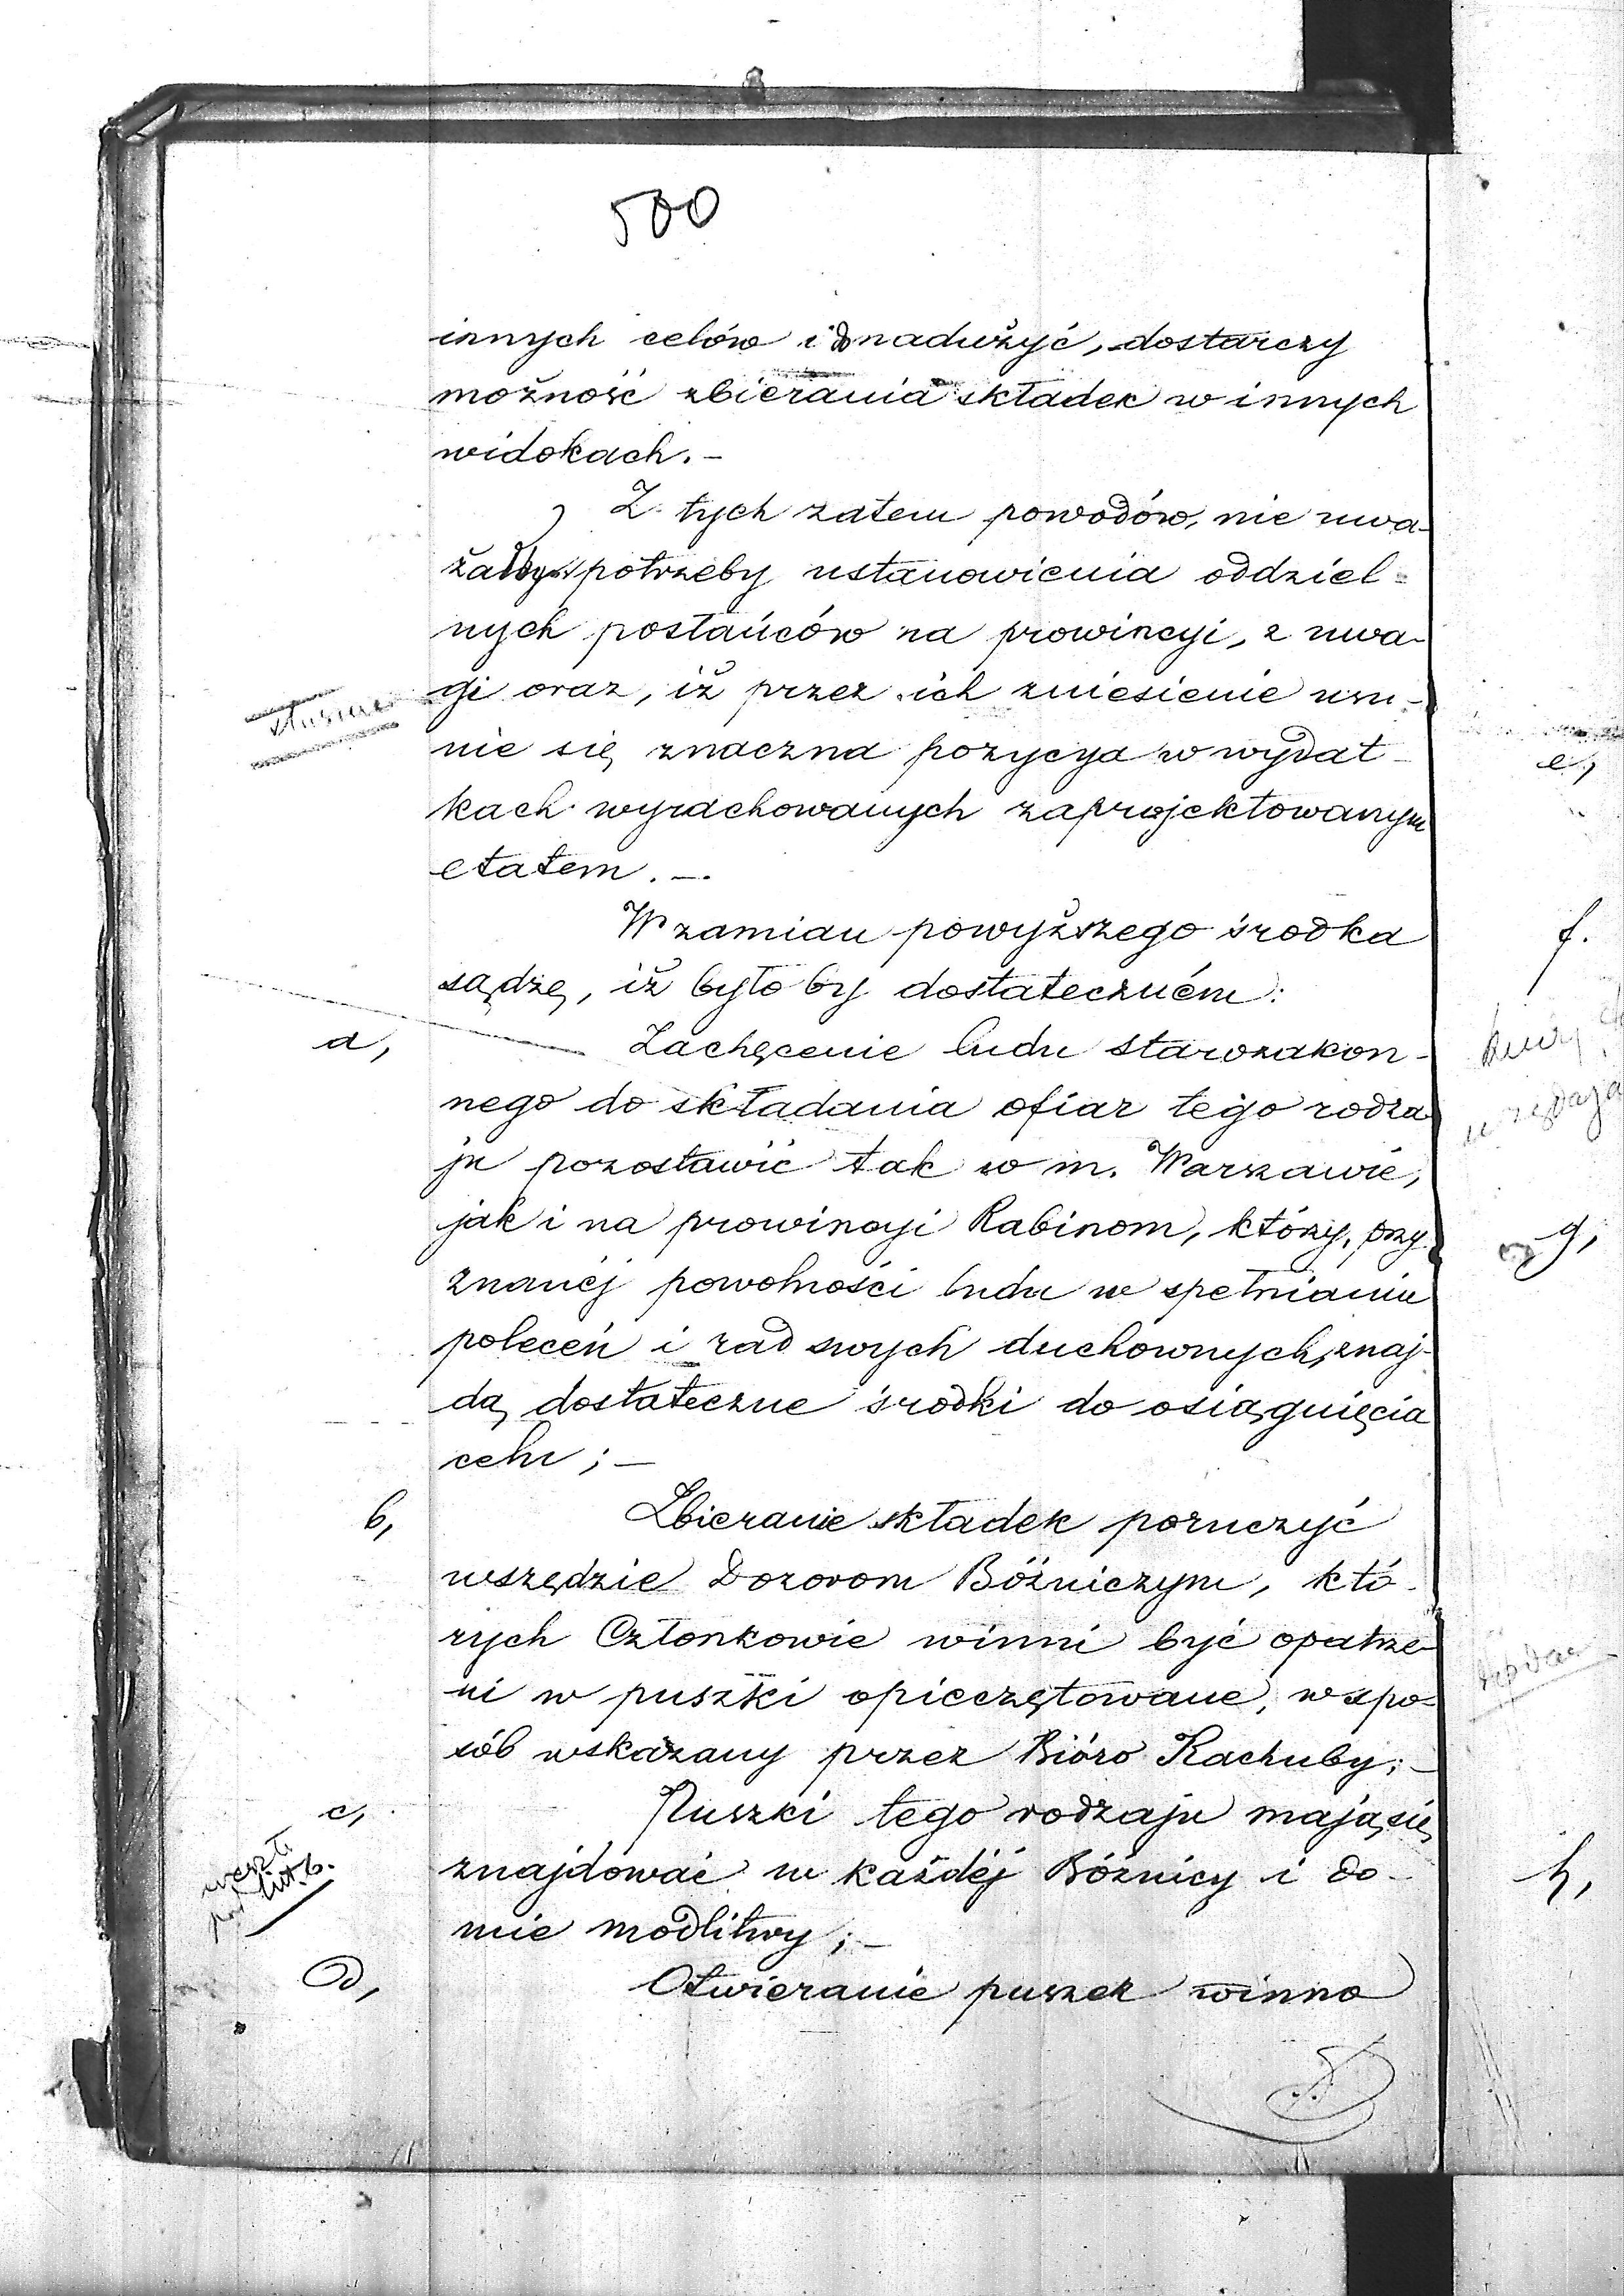 500
innych celów i do nadużyć, dostarczy
możność zbierania składek w innych
widokach. –
Z tych zatem powodów, nie uwa-
żałbym potrzeby ustanowienia oddziel-
nych posłańców na prowincyi, z uwa-
gi oraz, iż przez ich zniesienie usu-
nie się znaczna pozycya w wydat-
kach wyrachowanych zaprojektowanym
etatem. –
W zamian powyższego środka
sądzę, iż było by dostateczném:
a, Zachęcenie ludu starozakon-
nego do składania ofiar tego rodza-
ju pozostawić tak w m. Warszawie,
jak i na prowincyi Rabinom, którzy, przy
znanéj powolności ludu w spełnianiu
poleceń i rad swych duchownych, znaj-
dą dostateczne środki do osiągnięcia
celu; –
b, Zbieranie składek poruczyć
wszędzie Dozorom Bóżniczym, któ-
rych Członkowie winni być opatrze-
ni w puszki opieczętowane, w spo-
sób wskazany przez Bióro Rachuby; –
c, Puszki tego rodzaju mają się
weszło
pod litt. b.
znajdować w każdéj Bóżnicy i do-
mie modlitwy; –
d, Otwieranie puszek winno
e,
f.
g,
h,